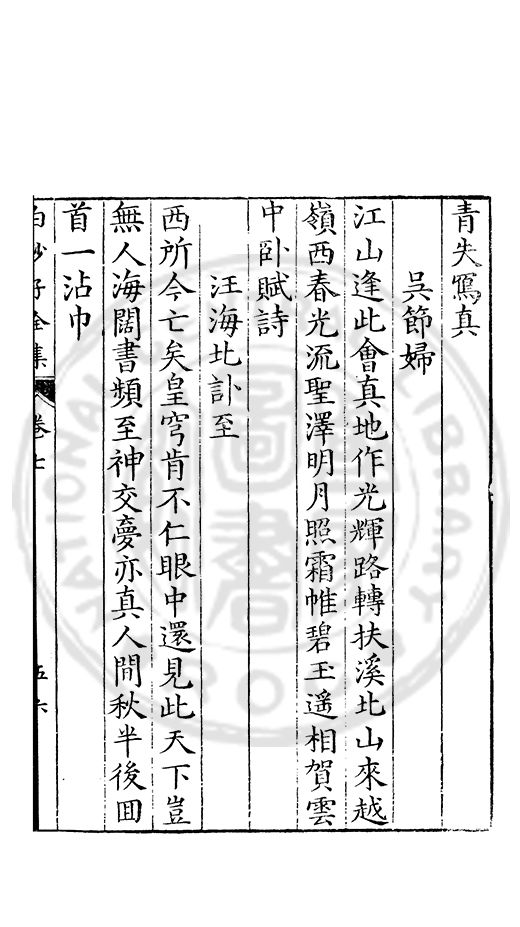 青失寫真
吳節婦
江山逢此會真地作光輝路轉扶溪北山來越
嶺西春光流聖澤明月照霜帷碧玉遥相賀雲
中卧賦詩
汪海北訃至
西所今亡矣皇穹肯不仁眼中還見此天下豈
無人海闊書頻至神交夢亦真人間秋半後囬
首一沾巾
白沙子全集 卷七 五六